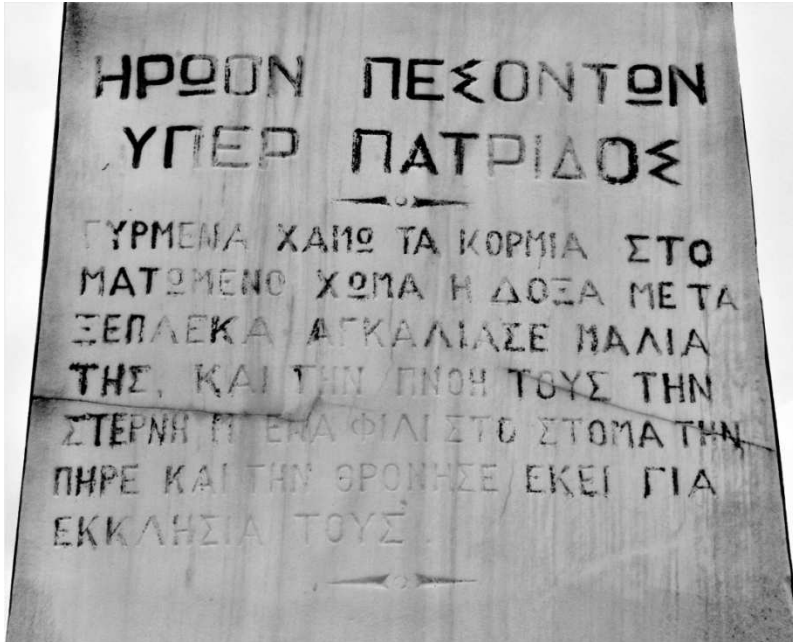 ΗΡΩΟΝ ΠΕΣΟΝΤΩΝ
ΥΠΕΡ ΠΑΤΡΙΔΟΣ
ΓΥΡΜΕΝΑ ΧΑΜΩ ΤΑ ΚΟΡΜΙΑ ΣΤΟ
ΜΑΤΩΜΕΝΟ ΧΩΜΑ Η ΔΟΞΑ ΜΕ ΤΑ
ΞΕΠΛΕΚΑ ΑΓΚΑΛΙΑΣΕ ΜΑΛΙΑ
ΤΗΣ, ΚΑΙ ΤΗΝ ΠΝΟΗ ΤΟΥΣ ΤΗΝ
ΣΤΕΡΝΗ Μ' ΕΝΑ ΦΙΛΙ ΣΤΟ ΣΤΟΜΑ ΤΗΝ
ΠΗΡΕ ΚΑΙ ΤΗΝ ΘΡΟΝΗΣΕ ΕΚΕΙ ΓΙΑ
ΕΚΚΛΗΣΙΑ ΤΟΥΣ.